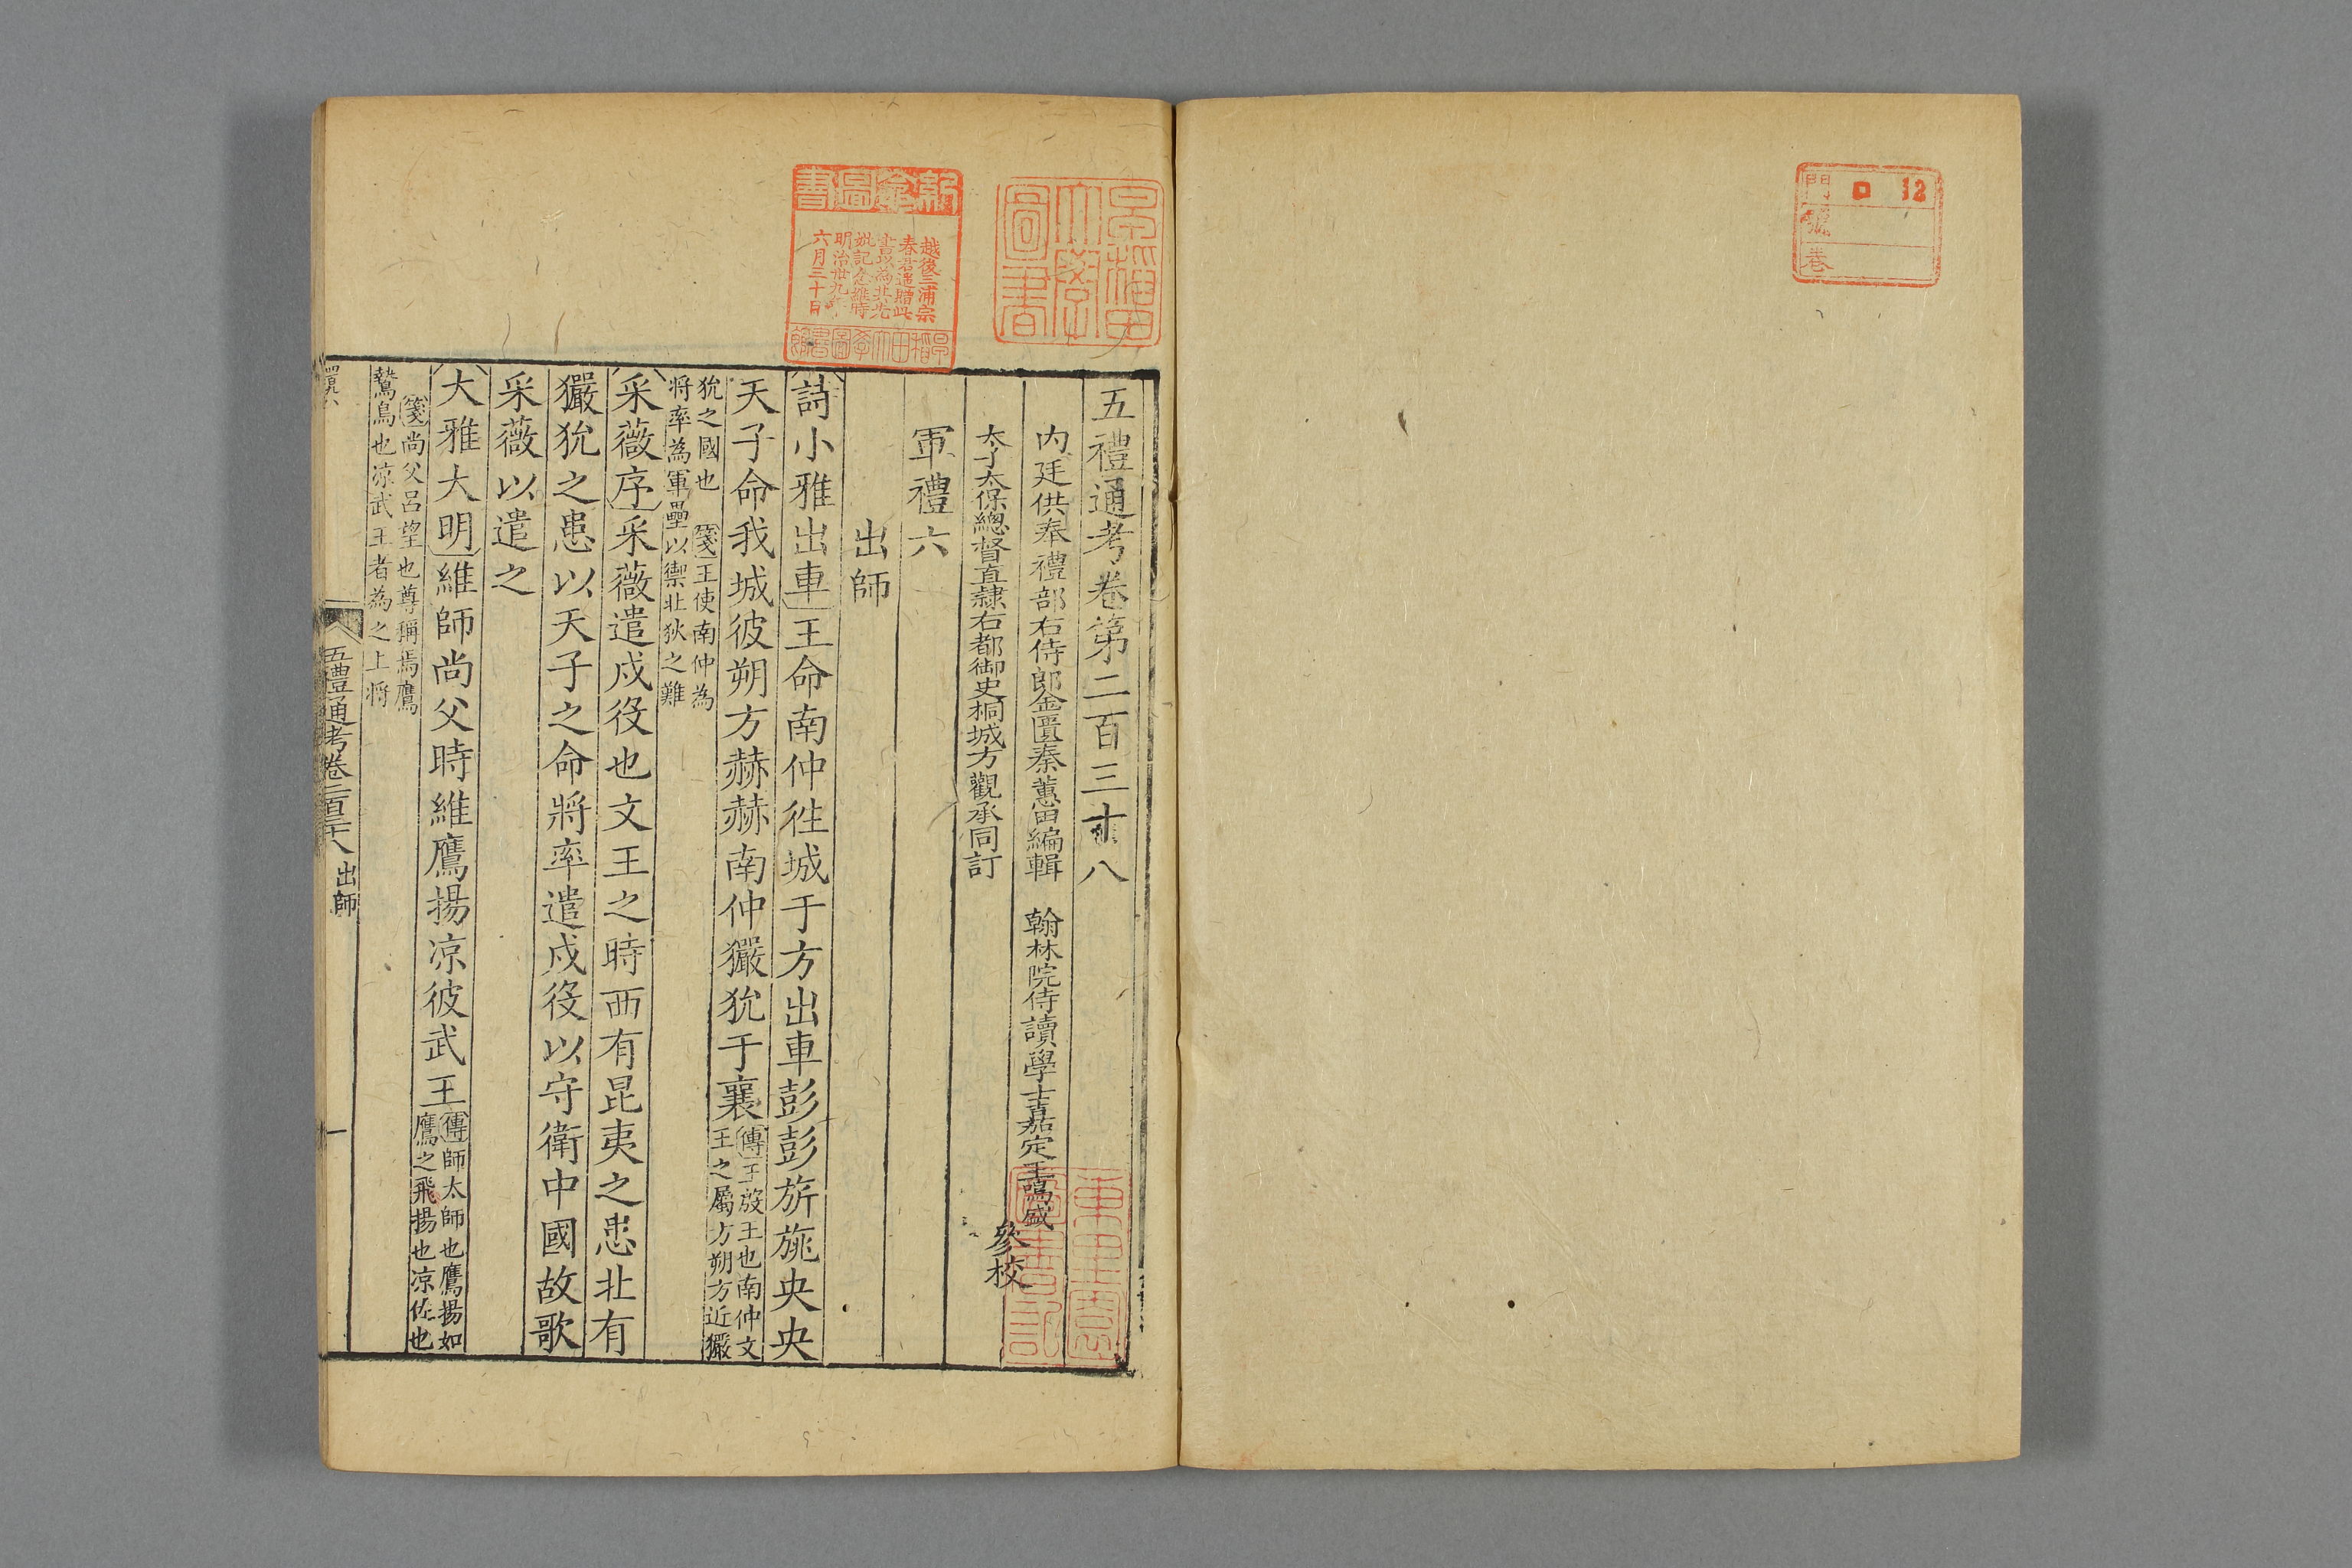 門 ロ 12
號
巷
五禮通考卷第二百三十八
内廷供奉禮部右侍郎金匱秦蕙田編輯 翰林院侍讀學士嘉定王鳴盛
參校
太子太保總督直隸右都御史桐城方觀承同訂
軍禮六
出師
詩小雅出車王命南仲徃城于方出車彭彭旂旐央央
天子命我城彼朔方赫赫南仲玁狁于襄傳王殷王也南仲文
王之屬方朔方近玁
狁之國也 箋王使南仲為
将率為軍壘以禦北狄之難
采薇序采薇遣戍役也文王之時西有昆夷之患北有
玁狁之患以天子之命將率遣戍役以守衛中國故歌
采薇以遣之
大雅大明維師尚父時維鷹揚凉彼武王傳師太師也鷹揚如
鷹之飛揚也凉佐也
箋尚父呂望也尊稱焉鷹
鷙鳥也凉武王者為之上將
五禮通考卷二百三十八 出師 一
越後三浦宗
春君遥贈此
書以為其先
妣記念維時
明治卅九年
六月三十日
早稲田大學圖書
早稲田大學圖書館